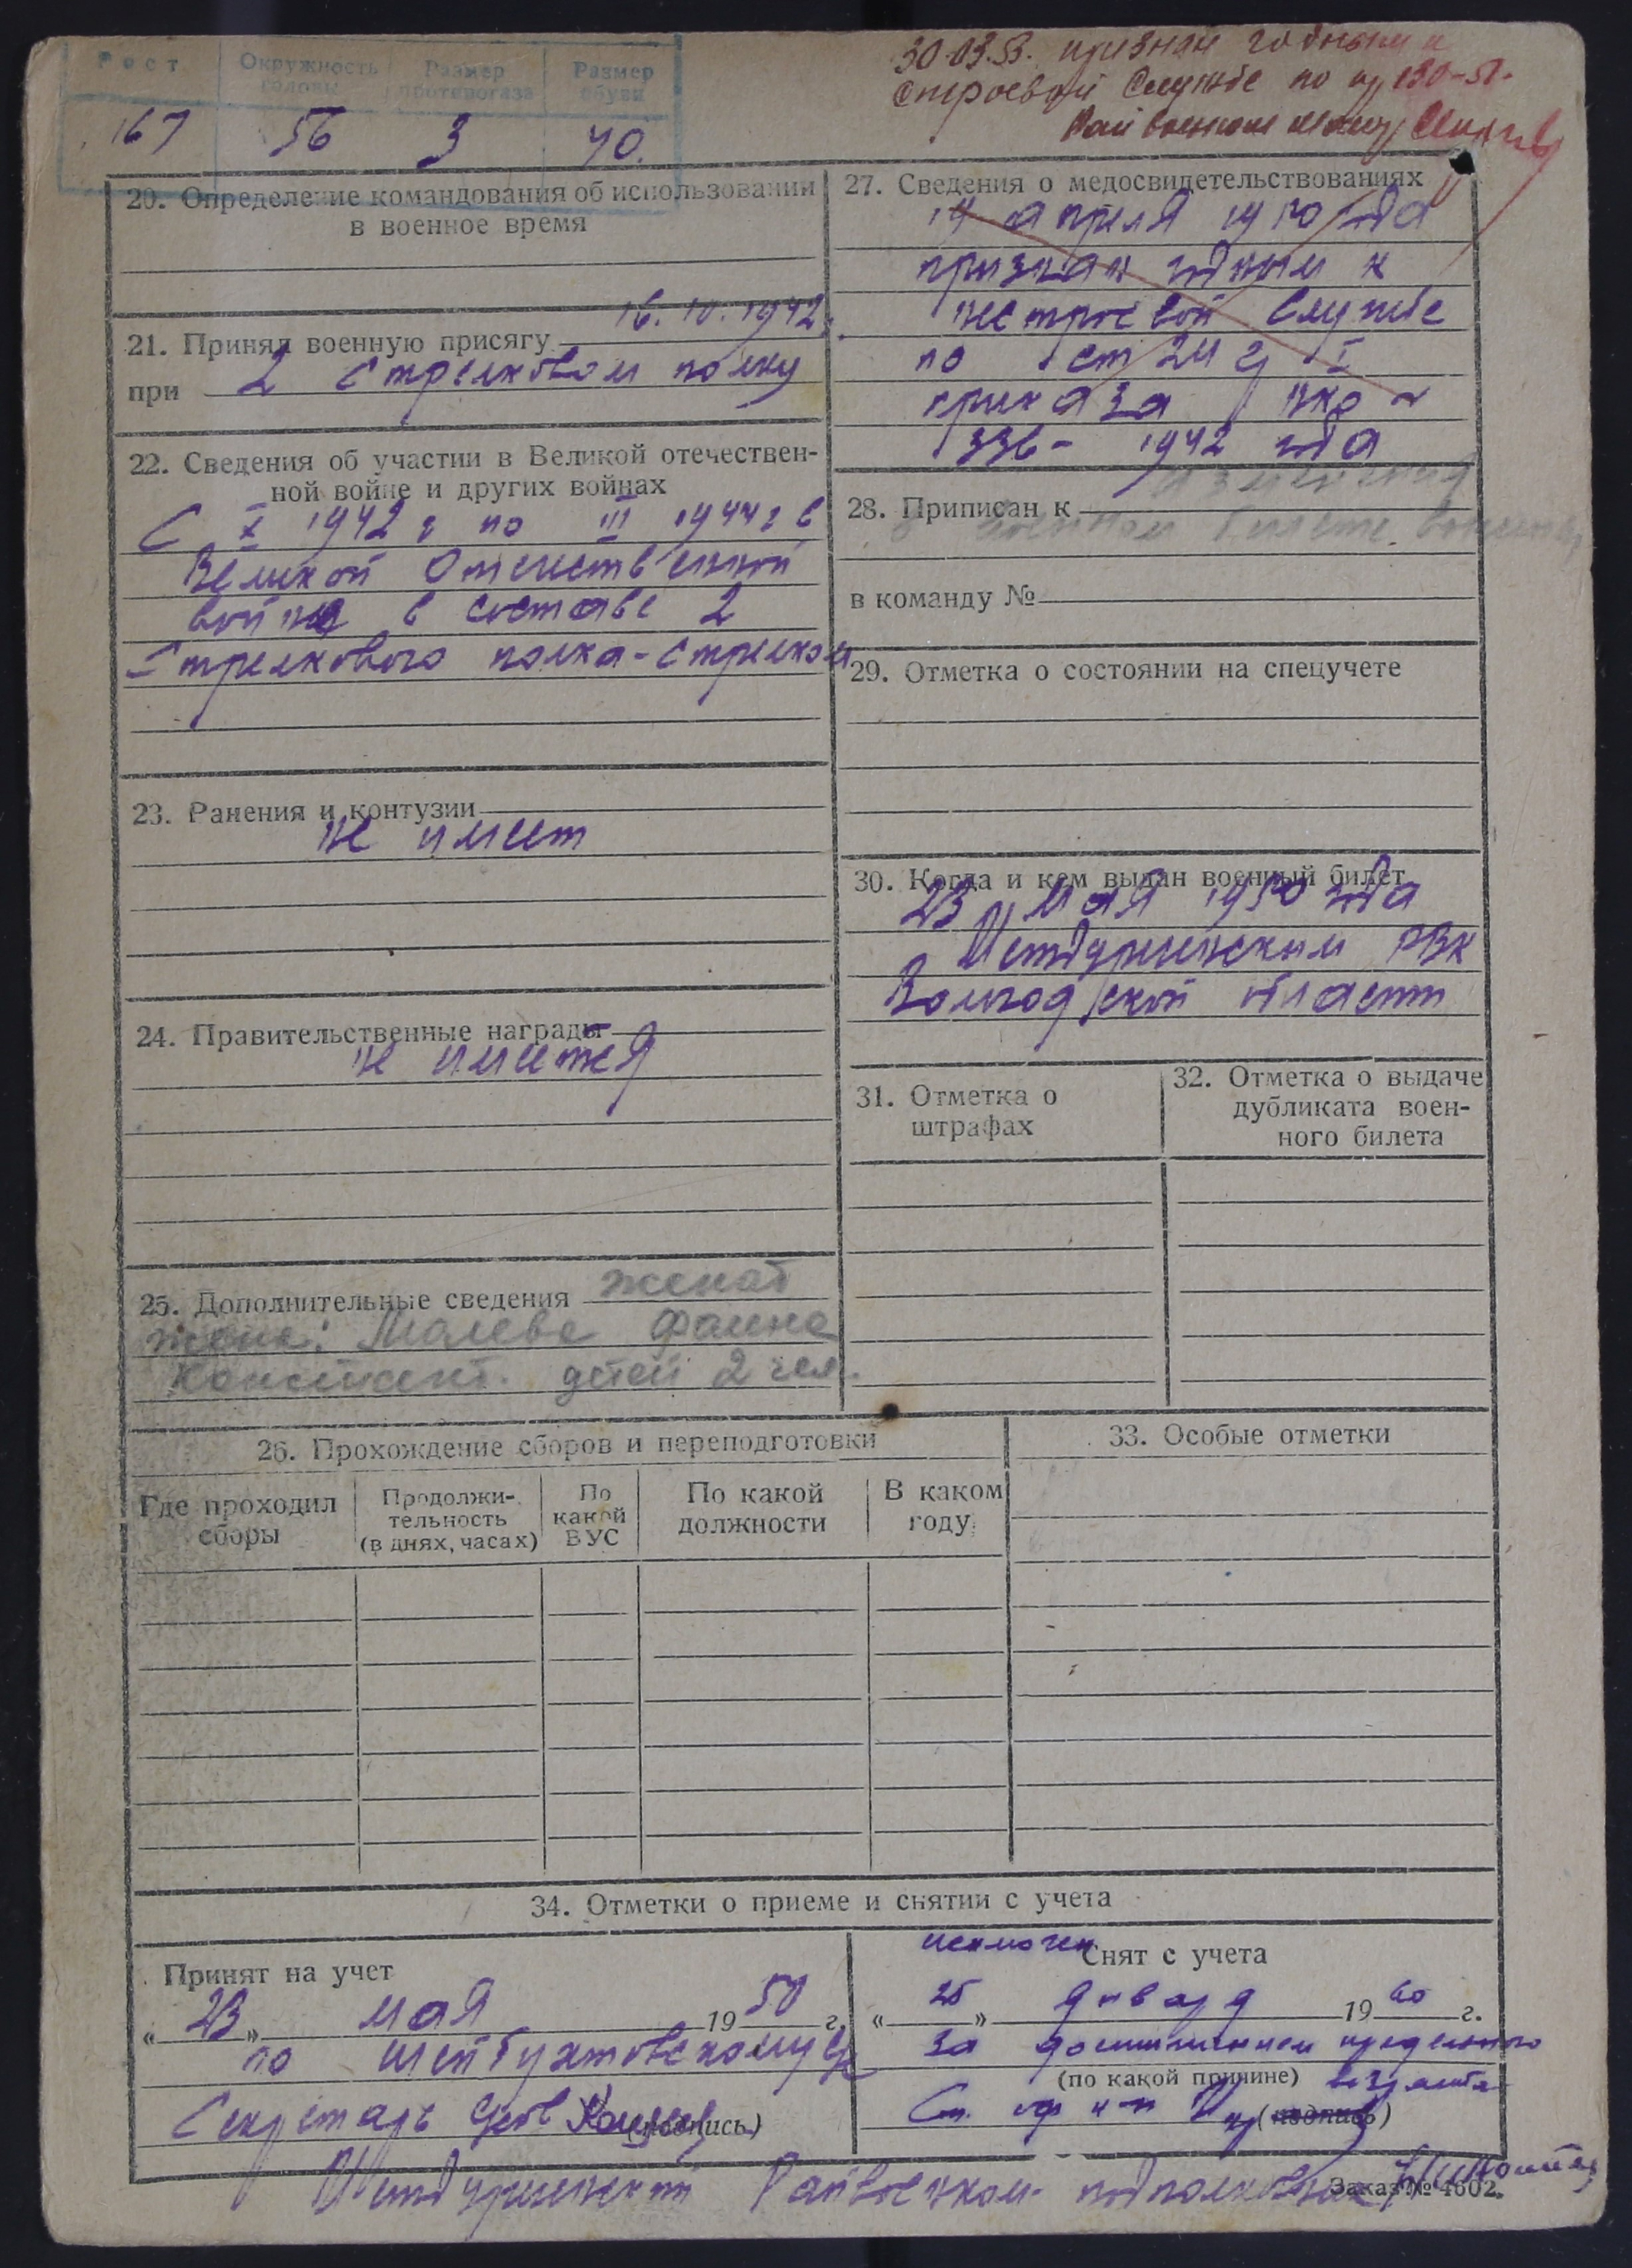 Рост Окружность головы Размер противогаза Размер обуви
167 56 3 40.
30.03.53. признан годным к
строевой службе по пр 130-51.
Райвоенком
20. Определение командования об использовании
в военное время
21. Принял военную присягу 16. 10. 1942.
при 2 стрелковом полку
22. Сведения об участии в Великой отечествен-
ной войне и других войнах
С X 1942 г по III 1944 г в
Великой Отечественной
войне в составе 2
Стрелкового полка-стрелком
23. Ранения и контузии
не имеет
24. Правительственные награды
не имеет
25. Дополнительные сведения женат
жена: Малева Фаина
Констант. детей 2 чел.
27. Сведения о медосвидетельствованиях
19 апреля 1950 года
признан годным к
нестроевой службе
по ст 24 г I
приказа НКО
336 - 1942 года
28. Приписан к
военном билете
в команду №
29. Отметка о состоянии на спецучете
30. Когда и кем выдан военный билет
23 мая 1950 года
Междуреченским РВК
Вологодской области
31. Отметка о
штрафах
32. Отметка о выдаче
дубликата воен-
ного билета
26. Прохождение сборов и переподготовки
Где проходил
сборы
Продолжи-
тельность
(в днях, часах)
По
какой
ВУС
По какой
должности
В каком
году
33. Особые отметки
34. Отметки о приеме и снятии с учета
Принят на учет
« 23 » мая 1950 г.
по Шейбухтовскому с/с
Секретарь с/сов (подпись)
исключен Снят с учета
« 25 » января 1960 г.
за достижением предельного
(по какой причине) возраста
Ст. оф (подпись)
Междуреченский Райвоенком подполковник
Заказ № 4602.